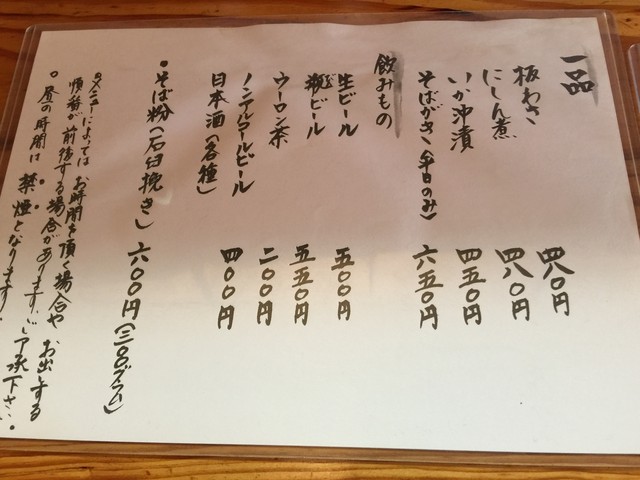 一品
板わさ 四八〇円
にしん煮 四八〇円
いか沖漬 四五〇円
そばがき(平日のみ) 六五〇円
飲みもの
生ビール 五〇〇円
瓶ビール 五五〇円
ウーロン茶 二〇〇円
ノンアルコールビール 四〇〇円
日本酒(各種)
・そば粉(石臼挽き) 六〇〇円(三〇〇グラム)
○メニューによってはお時間を頂く場合や お出しする
順番が前後する場合があります。ご了承下さい。
○昼の時間は 禁煙となります!